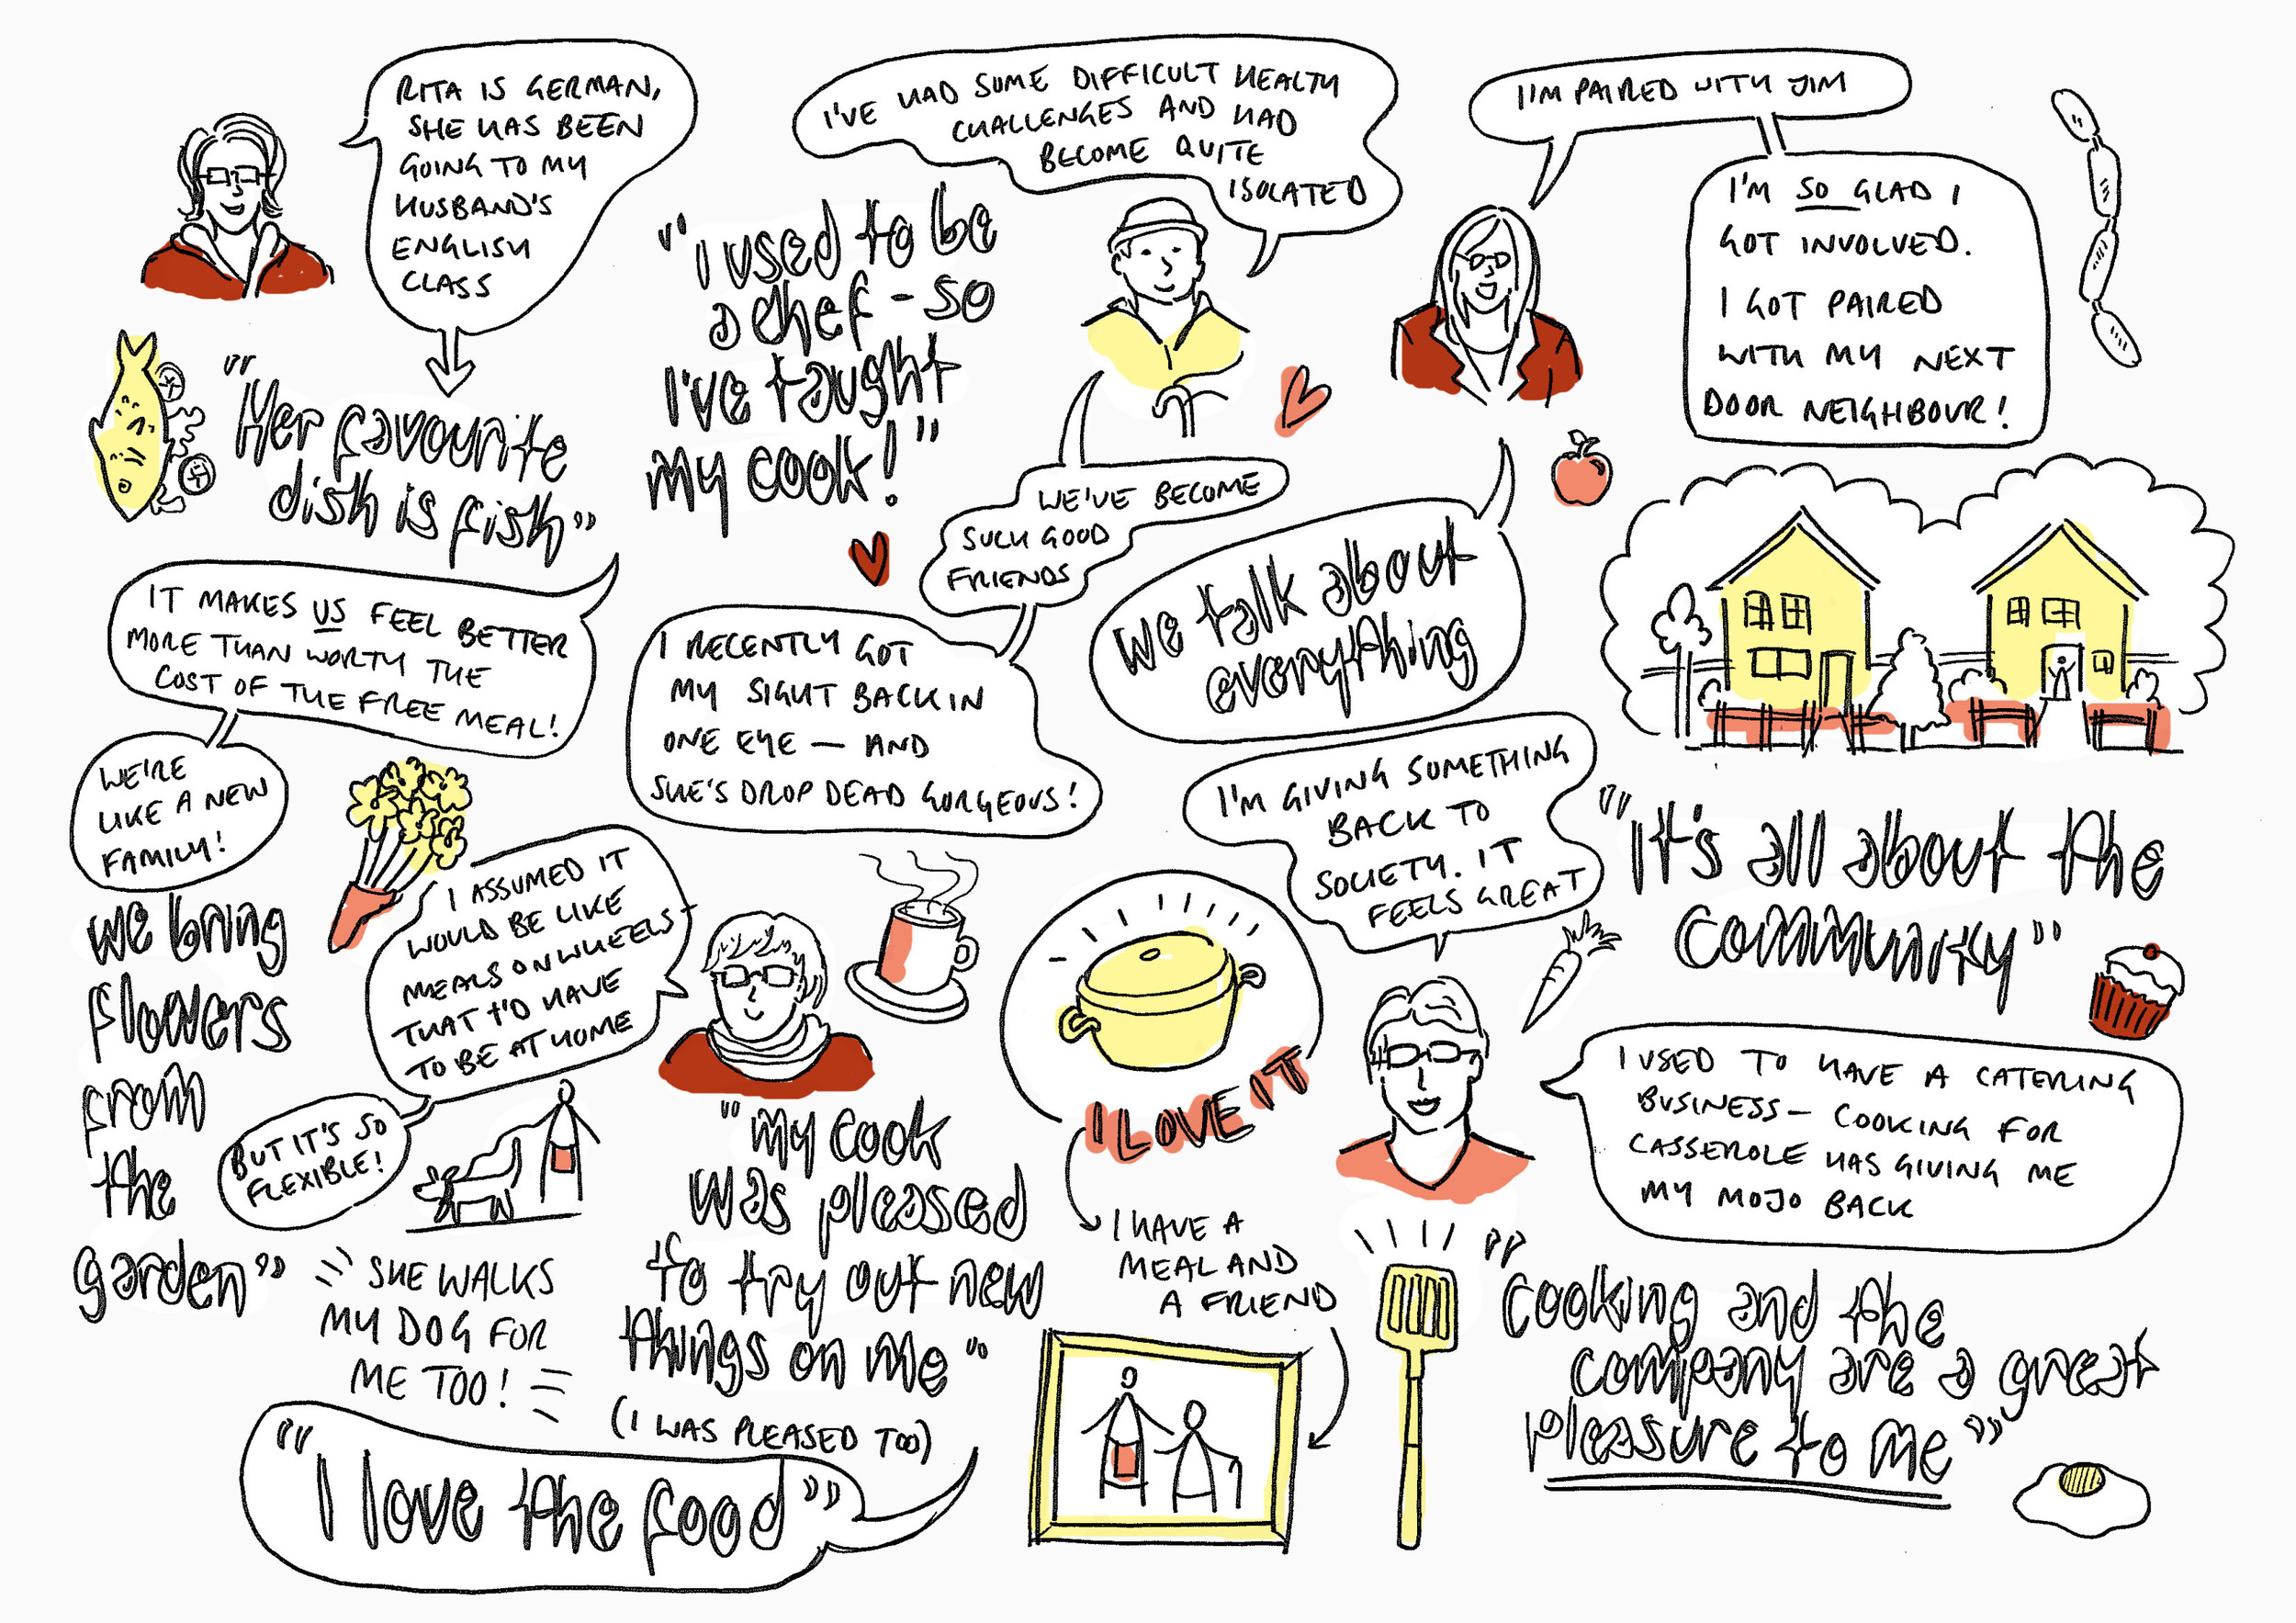 RITA IS GERMAN,
SHE HAS BEEN
GOING TO MY
HUSBAND'S
ENGLISH
CLASS
"Her favourite
dish is fish"
IT MAKES US FEEL BETTER
MORE THAN WORTH THE
COST OF THE FREE MEAL!
WE'RE
LIKE A NEW
FAMILY!
we bring
flowers
from
the
garden"
I'VE HAD SOME DIFFICULT HEALTH
CHALLENGES AND HAD
BECOME QUITE
ISOLATED
"I used to be
a chef - so
I've taught
my cook!"
WE'VE BECOME
SUCH GOOD
FRIENDS
I RECENTLY GOT
MY SIGHT BACK IN
ONE EYE — AND
SHE'S DROP DEAD GORGEOUS!
I'M PAIRED WITH JIM
I'M SO GLAD I
GOT INVOLVED.
I GOT PAIRED
WITH MY NEXT
DOOR NEIGHBOUR!
we talk about
everything
"It's all about the
community"
I ASSUMED IT
WOULD BE LIKE
MEALS ON WHEELS-
THAT I'D HAVE
TO BE AT HOME
BUT IT'S SO
FLEXIBLE!
SHE WALKS
MY DOG FOR
ME TOO!
"my cook
was pleased
to try out new
things on me"
(I WAS PLEASED TOO)
"I love the food"
I LOVE IT
I HAVE A
MEAL AND
A FRIEND
I'M GIVING SOMETHING
BACK TO
SOCIETY. IT
FEELS GREAT
I USED TO HAVE A CATERING
BUSINESS— COOKING FOR
CASSEROLE HAS GIVING ME
MY MOJO BACK
"cooking and the
company are a great
pleasure to me"